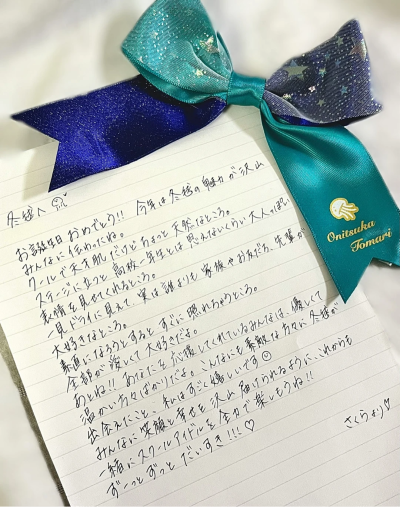 Onitsuka
Tomari
冬毬へ
お誕生日おめでとう!! 今年は冬毬の魅力が沢山
みんなに伝わったね。
クールで末手肌だけどちょっと天然なところ。
ステージに立つと高校一年生とは思えないくらい大人っぽい
表情を見せてくれるところ。
一見ドライに見えて、実は誰よりも家族やお友だち、先輩が
大好きなところ。
素直になろうとすると、すぐに照れちゃうところ。
全部が愛しくて大好きだよ。
あとね!! あなたを応援してくれているみんなは、優しくて
温かい方々ばかりだよ。こんなにも素敵な方々に冬毬が
出会えたこと、私はすごく嬉しいです
みんなに笑顔と幸せを沢山届けられるように、これからも
一緒にスクールアイドルを全力で楽しもうね!!
ずーっとずっと だいすき!!!♡
さくらより♡